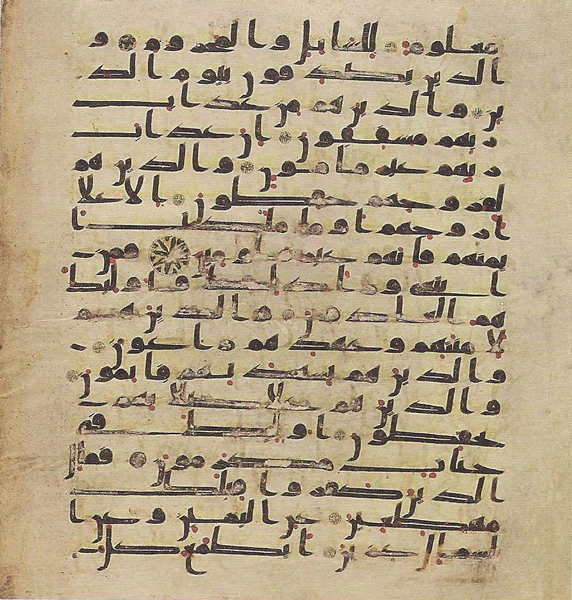 معلوم للسايل والمحروم و
الذين يصدقون بيوم الد
ين والذين هم من عذاب
ربهم مشفقون ان عذاب
ربهم غير مامون والذين هم
لفروجهم حفظون الا علا
ازوجهم او ما ملكت ا
يمنهم فانهم غير ملومين فمن
ابتغى ورا ذلك فاوليك
هم العادون والذين هم
لامنتهم وعهدهم راعون
والذين هم بشهدتهم قايمون
والذين هم على صلاتهم يـ
حفظون اوليك في
جنت مكرمون فمال
الذين كفروا قبلك
مهطعين عن اليمين وعن ا
لشمال عزين ايطمع كل